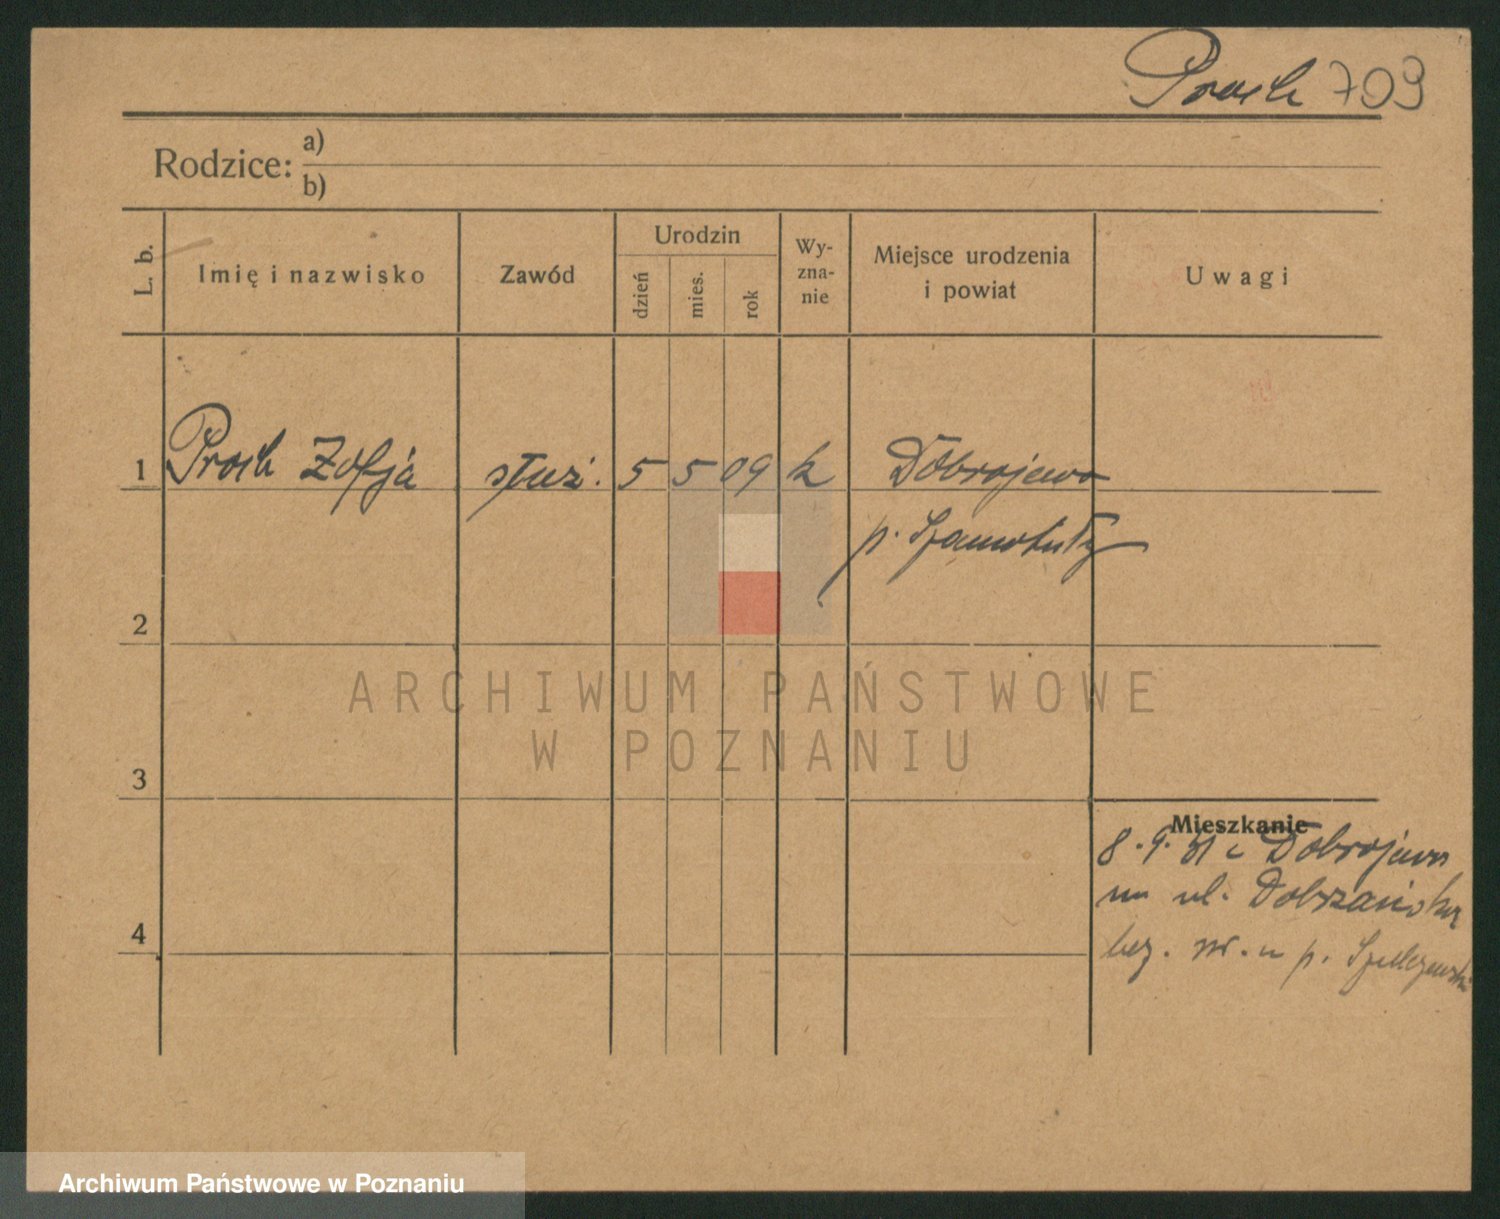 Proch 709
Rodzice: a)
b)
L. b.
Imię i nazwisko
Zawód
Urodzin
dzień
mies.
rok
Wy-
zna-
nie
Miejsce urodzenia
i powiat
Uwagi
1 Proch Zofja służ. 5 5 09 k Dobrojewo
p. Szamotuły
2
ARCHIWUM PAŃSTWOWE
W POZNANIU
3
Mieszkanie
8.9.31 z Dobrojewa
na ul. Dobrzańską
bez. nr. u p.
4
Archiwum Państwowe w Poznaniu